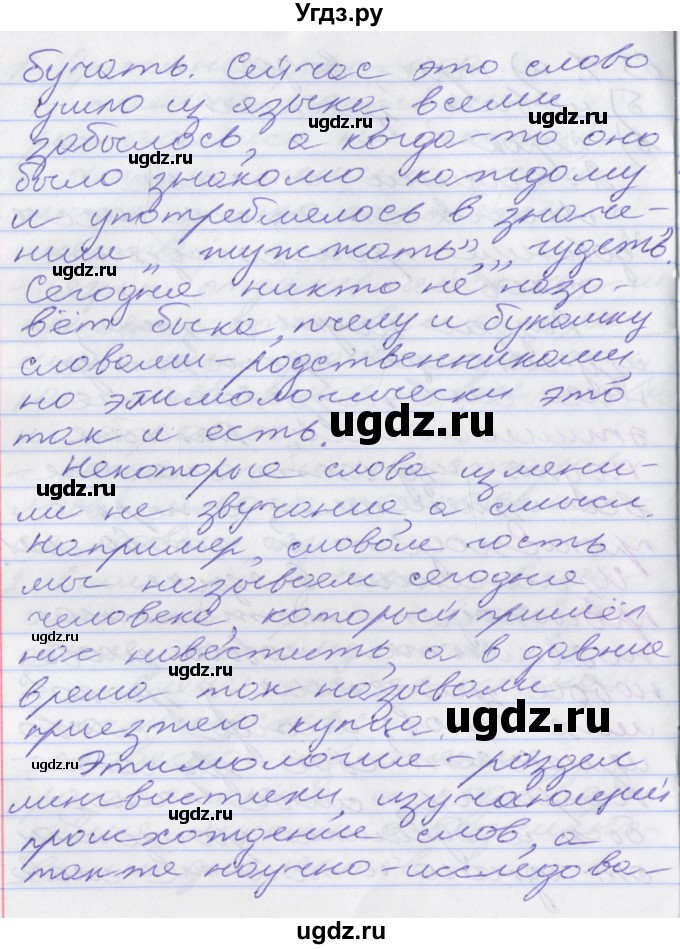 Угдз.ру
бучать. Сейчас это слово
ушло из языка всеми
ugdz.ru
забылось, а когда-то оно
ugdz.ru
было знакомо каждому
и употреблялось в значе-
нии „жужжать”, „гудеть”.
ugdz.ru
Сегодня никто не назо-
вёт быка, пчелу и букашку
ugdz.ru
словами-родственниками,
но этимологически это
так и есть.
ugdz.ru
Некоторые слова измени-
ugdz.ru
ли не звучание, а смысл.
ugdz.ru
Например, словом гость
мы называем сегодня
человека, который пришёл
ugdz.ru
нас навестить, а в давние
ugdz.ru
время так называли
приезжего купца.
ugdz.ru
ugdz.ru
Этимология - раздел
лингвистики, изучающий
происхождение слов, а
также научно-исследова-
ugdz.ru